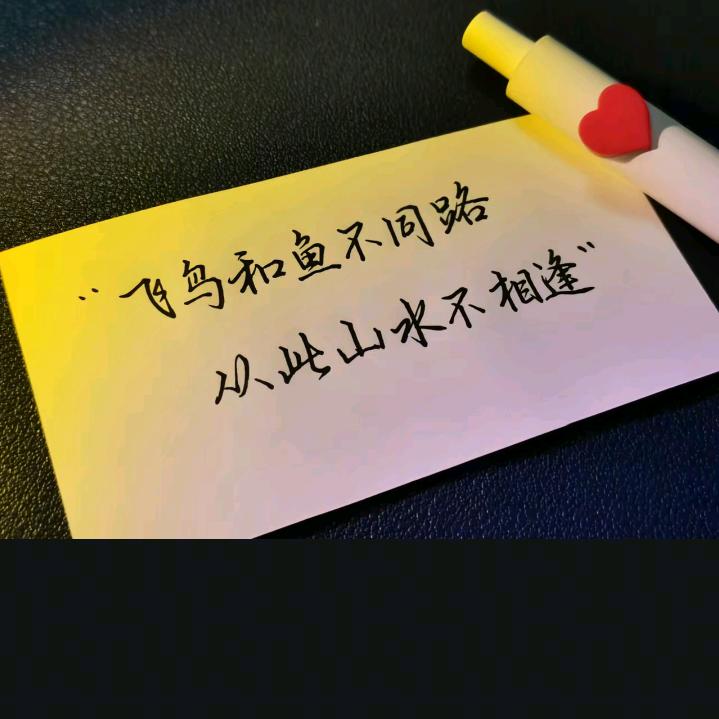 “飞鸟和鱼不同路
从此山水不相逢”